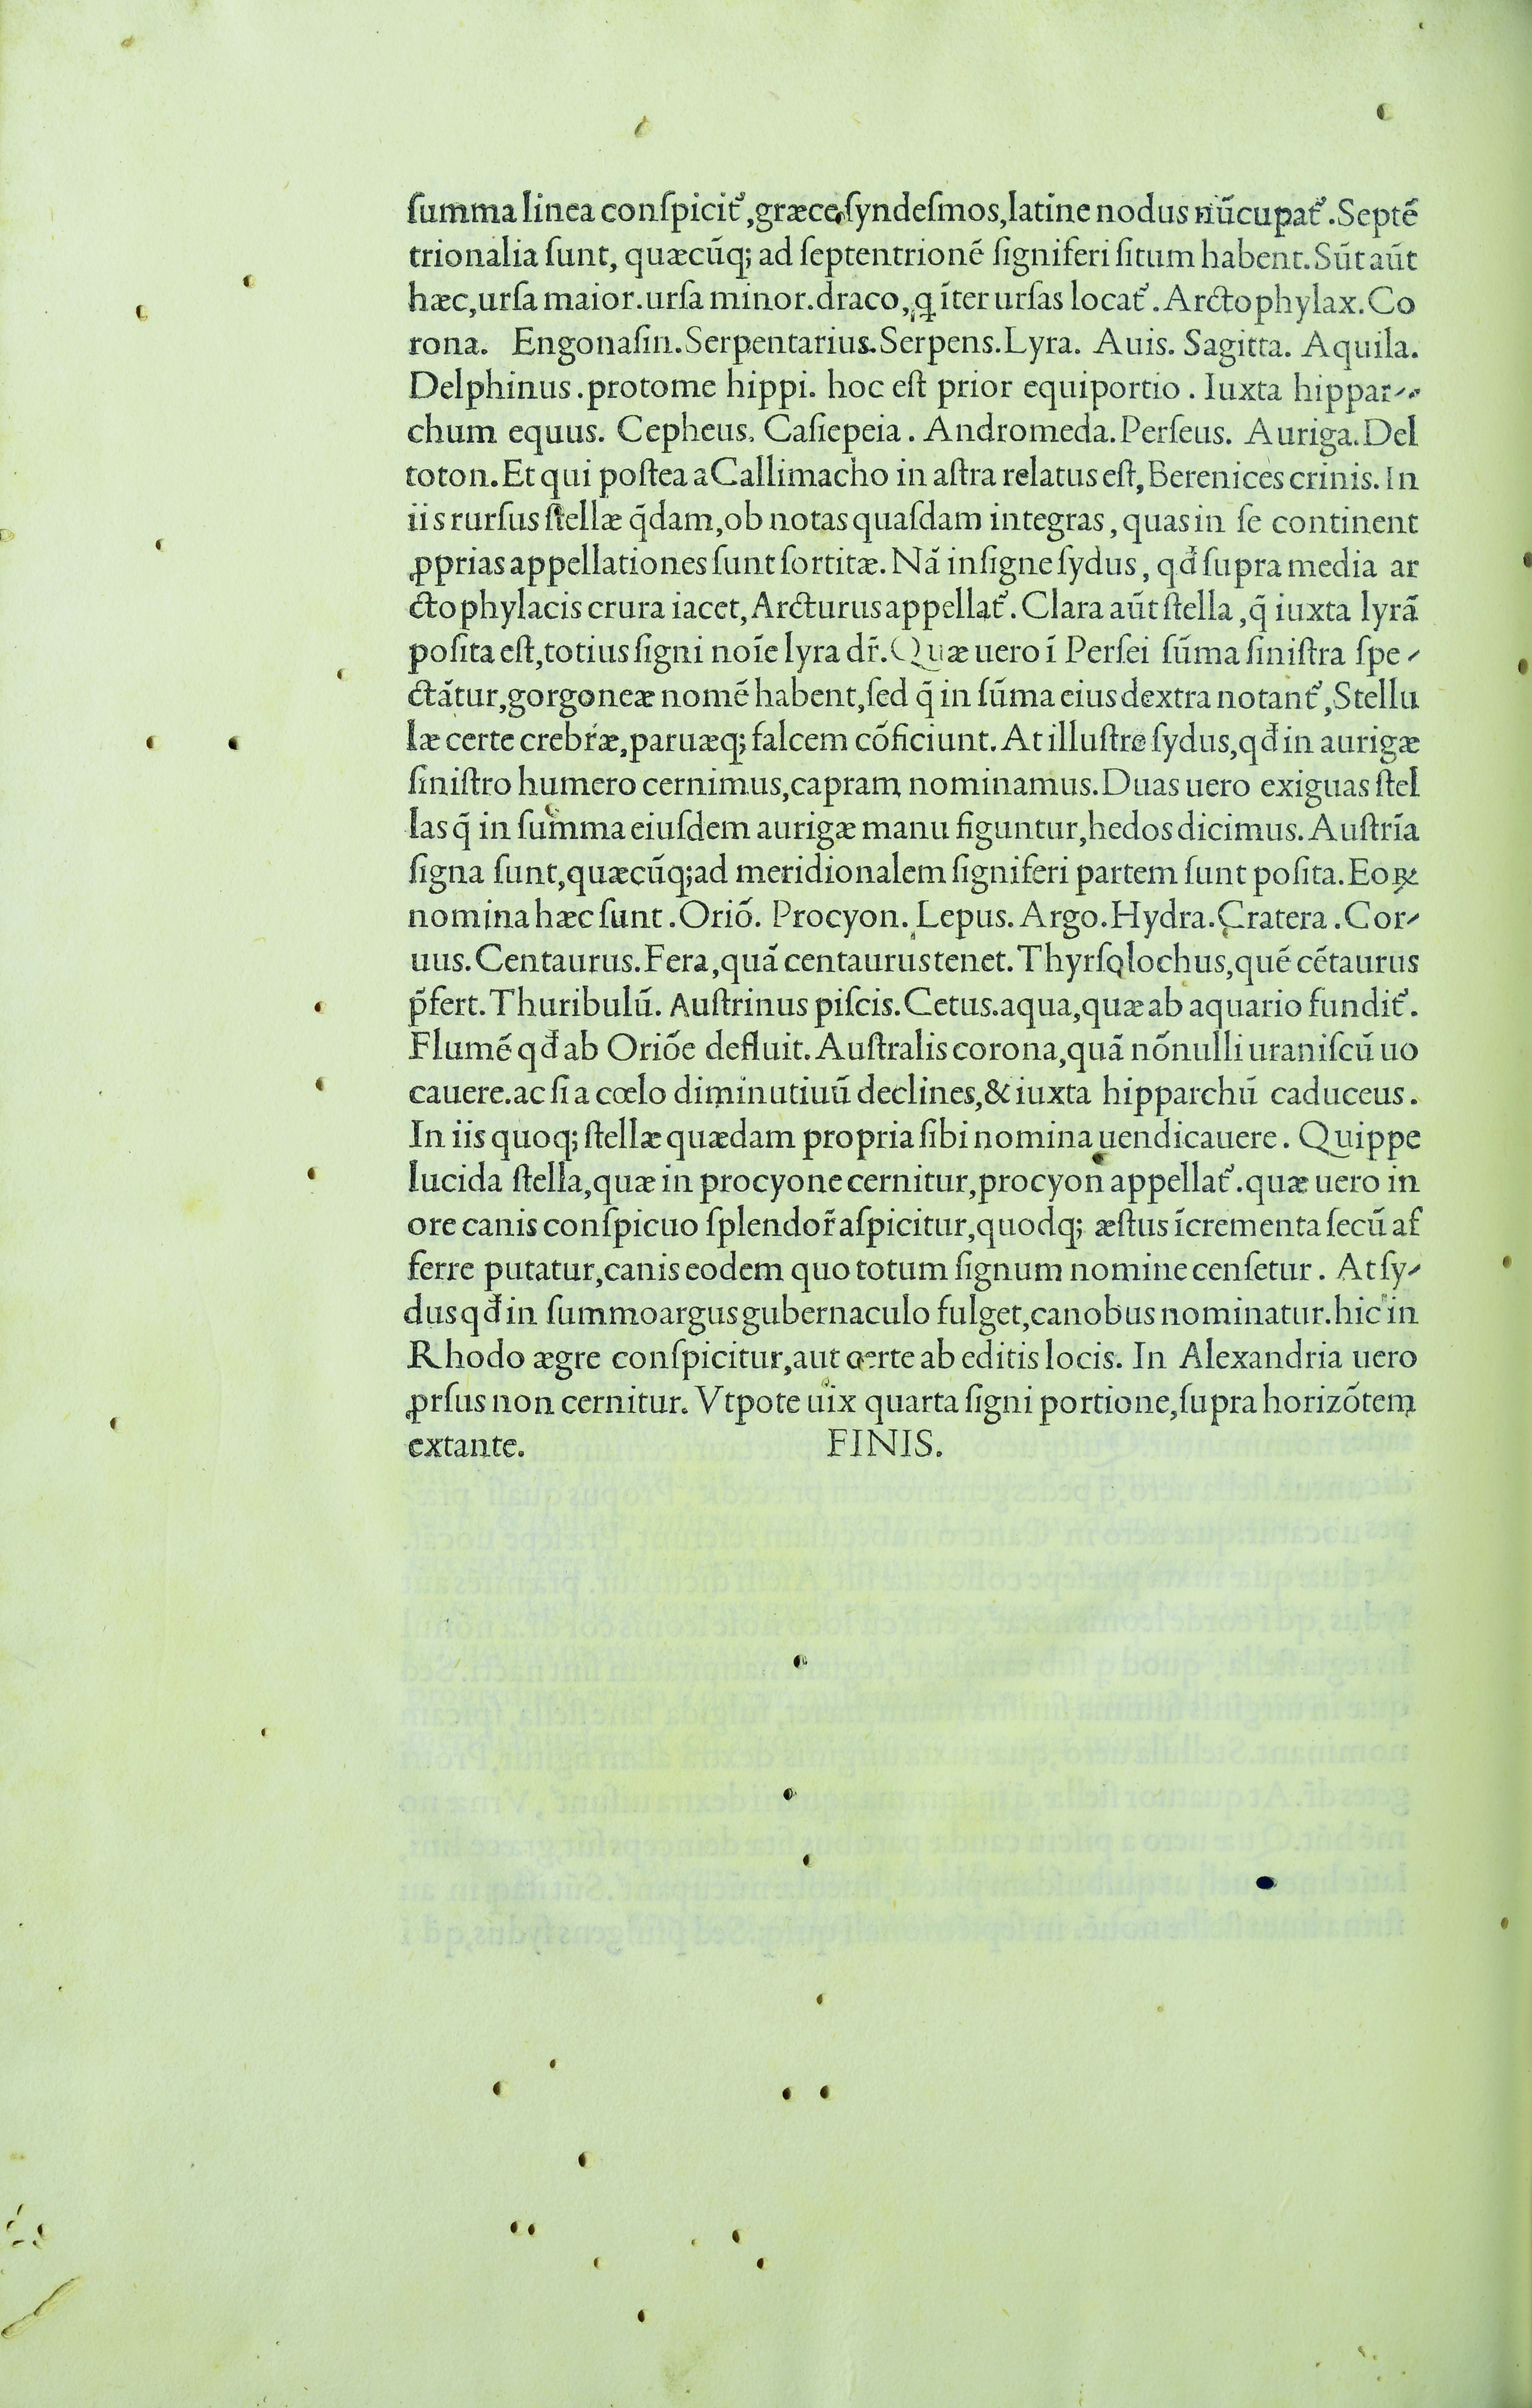 ſumma linea conſpicit᷒,græce ſyndeſmos,latine nodus nūcupat᷒.Septē
trionalia ſunt, quæcūq; ad ſeptentrionē ſigniferi ſitum habent.Sūt aūt
hæc,urſa maior.urſa minor.draco, q īter urſas locat᷒.Arctophylax.Co
rona. Engonaſin.Serpentarius.Serpens.Lyra. Auis. Sagitta. Aquila.
Delphinus.protome hippi. hoc eſt prior equiportio. Iuxta hippar-
chum equus. Cepheus. Caſiepeia. Andromeda.Perſeus. Auriga.Del
toton.Et qui poſtea a Callimacho in aſtra relatus eſt,Berenices crinis. In
iis rurſus ſtellæ q̄dam,ob notas quaſdam integras,quas in ſe continent
ꝓprias appellationes ſunt ſortitæ.Nā inſigne ſydus, qđ ſupra media ar
ctophylacis crura iacet,Arcturus appellat᷒.Clara aūt ſtella,q̄ iuxta lyrā
poſita eſt,totius ſigni noīe lyra dr̄.Quæ uero ī Perſei ſūma ſiniſtra ſpe-
ctātur,gorgoneæ nomē habent,ſed q̄ in ſūma eius dextra notant᷒,Stellu
læ certe crebræ,paruæq; falcem cōficiunt.At illuſtre ſydus,qđ in aurigæ
ſiniſtro humero cernimus,capram nominamus.Duas uero exiguas ſtel
las q̄ in ſumma eiuſdem aurigæ manu figuntur,hedos dicimus.Auſtrīa
ſigna ſunt,quæcūq;ad meridionalem ſigniferi partem ſunt poſita.Eoꝝ
nomina hæc ſunt.Oriō. Procyon.Lepus.Argo.Hydra.Cratera.Cor-
uus.Centaurus.Fera,quā centaurus tenet.Thyrſolochus,quē cētaurus
p̄fert.Thuribulū. Auſtrinus piſcis.Cetus.aqua,quæ ab aquario fundit᷒.
Flumē qđ ab Oriōe defluit.Auſtralis corona,quā nōnulli uraniſcū uo
cauere.ac ſi a cœlo diminutiuū declines,& iuxta hipparchū caduceus.
In iis quoq; ſtellæ quædam propria ſibi nomina uendicauere. Quippe
lucida ſtella,quæ in procyone cernitur,procyon appellat᷒.quæ uero in
ore canis conſpicuo ſplendor̄ aſpicitur,quodq; æſtus īcrementa ſecū af
ferre putatur,canis eodem quo totum ſignum nomine cenſetur. At ſy-
dus qđ in ſummo argus gubernaculo fulget,canobus nominatur.hic in
Rhodo ægre conſpicitur,aut certe ab editis locis. In Alexandria uero
ꝓrſus non cernitur. Vtpote uix quarta ſigni portione,ſupra horizōtem
extante. FINIS.